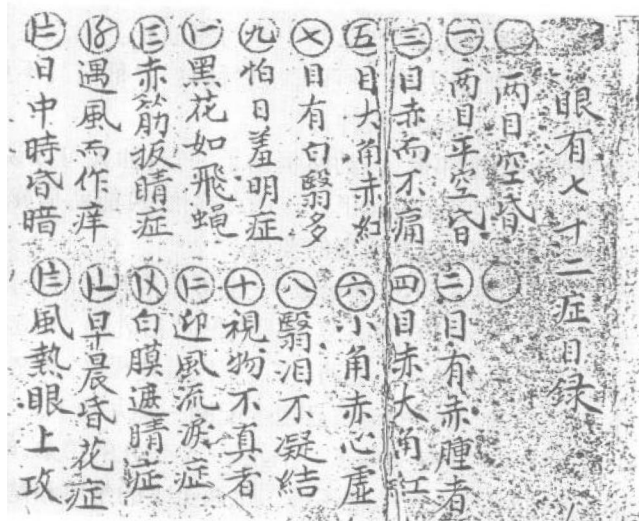 眼有七十二症目録
两目空昏
一 两目平空昏
二 目有赤腫者
三 目赤而不痛
四 目赤大角江
五 目大角赤如
六 小角赤心虛
七 目有白翳多
八 翳泪不凝結
九 怕日羞明症
十 視物不真者
〡一 黑花如飛蝇
〡二 迎風流淚症
〡三 赤筋扳睛症
〡〤 白膜遮睛症
〡〥 遇風而作痒
〡〦 早晨昏花症
〡〧 日中時昏暗
〡〨 風熱眼上攻